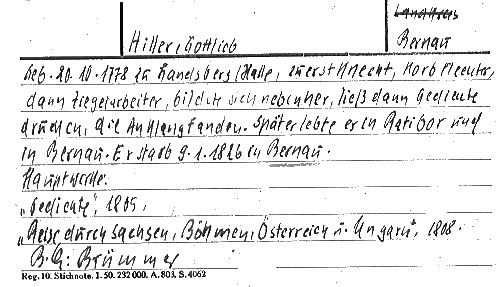 Landkreis
Hiller, Gottlieb
Bernau
geb. 20.10.1778 zu Landsberg/Halle, zuerst Knecht, Korbflechter,
dann Ziegelarbeiter, bildete sich nebenher, ließ dann Gedichte
drucken, die Anklang fanden. Später lebte er in Ratibor und
in Bernau. Er starb 9.1.1826 in Bernau.
Hauptwerke:
„Gedichte", 1805,
„Reise durch Sachsen, Böhmen, Österreich u. Ungarn", 1808.
B.Qu: Brümmer
Reg. 10. Stichnote. 1. 50. 232 000. A. 803. S. 4062